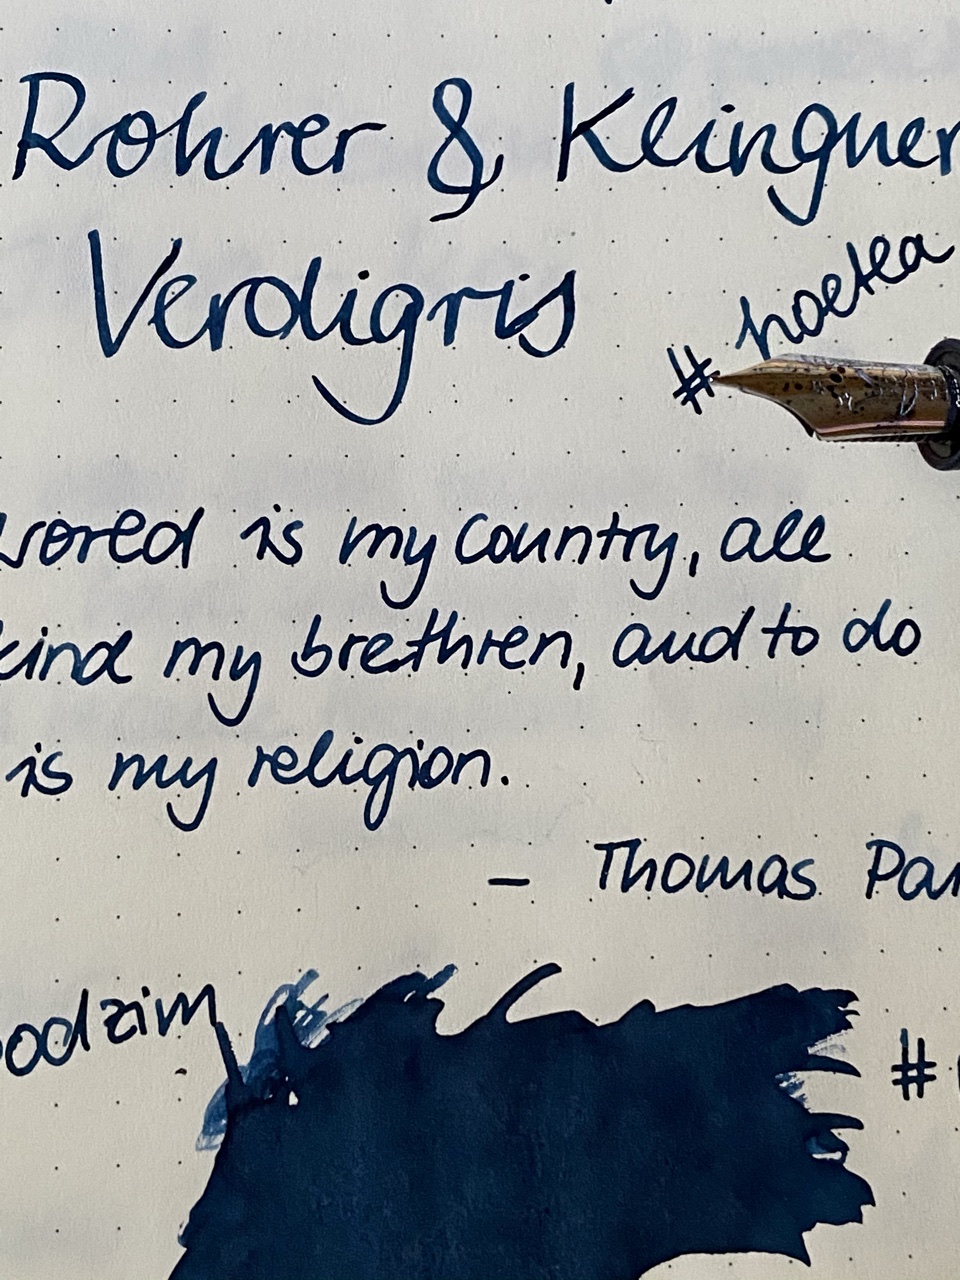 Rohrer & Klingner
Verdigris
# noetea
wored is my country, all
kind my brethren, and to do
is my religion.
— Thomas Pai
oodzim
#